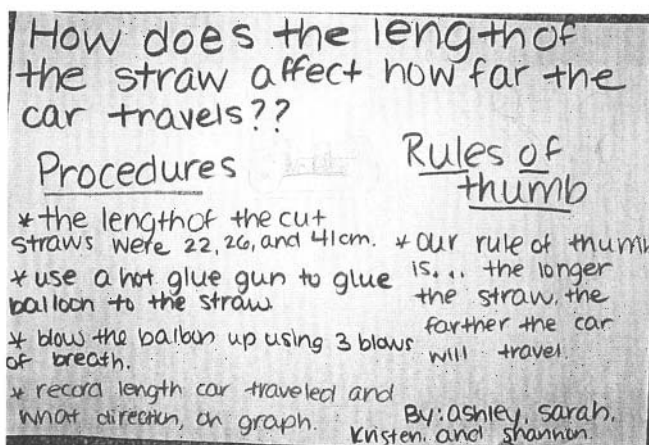 How does the length of
the straw affect how far the
car travels??
Procedures
* the length of the cut
straws were 22, 26, and 41cm.
* use a hot glue gun to glue
balloon to the straw
* blow the balloon up using 3 blows
of breath.
* record length car traveled and
what direction, on graph.
Rules of
thumb
* our rule of thumb
is... the longer
the straw, the
farther the car
will travel.
By: ashley, sarah,
Kristen, and shannon